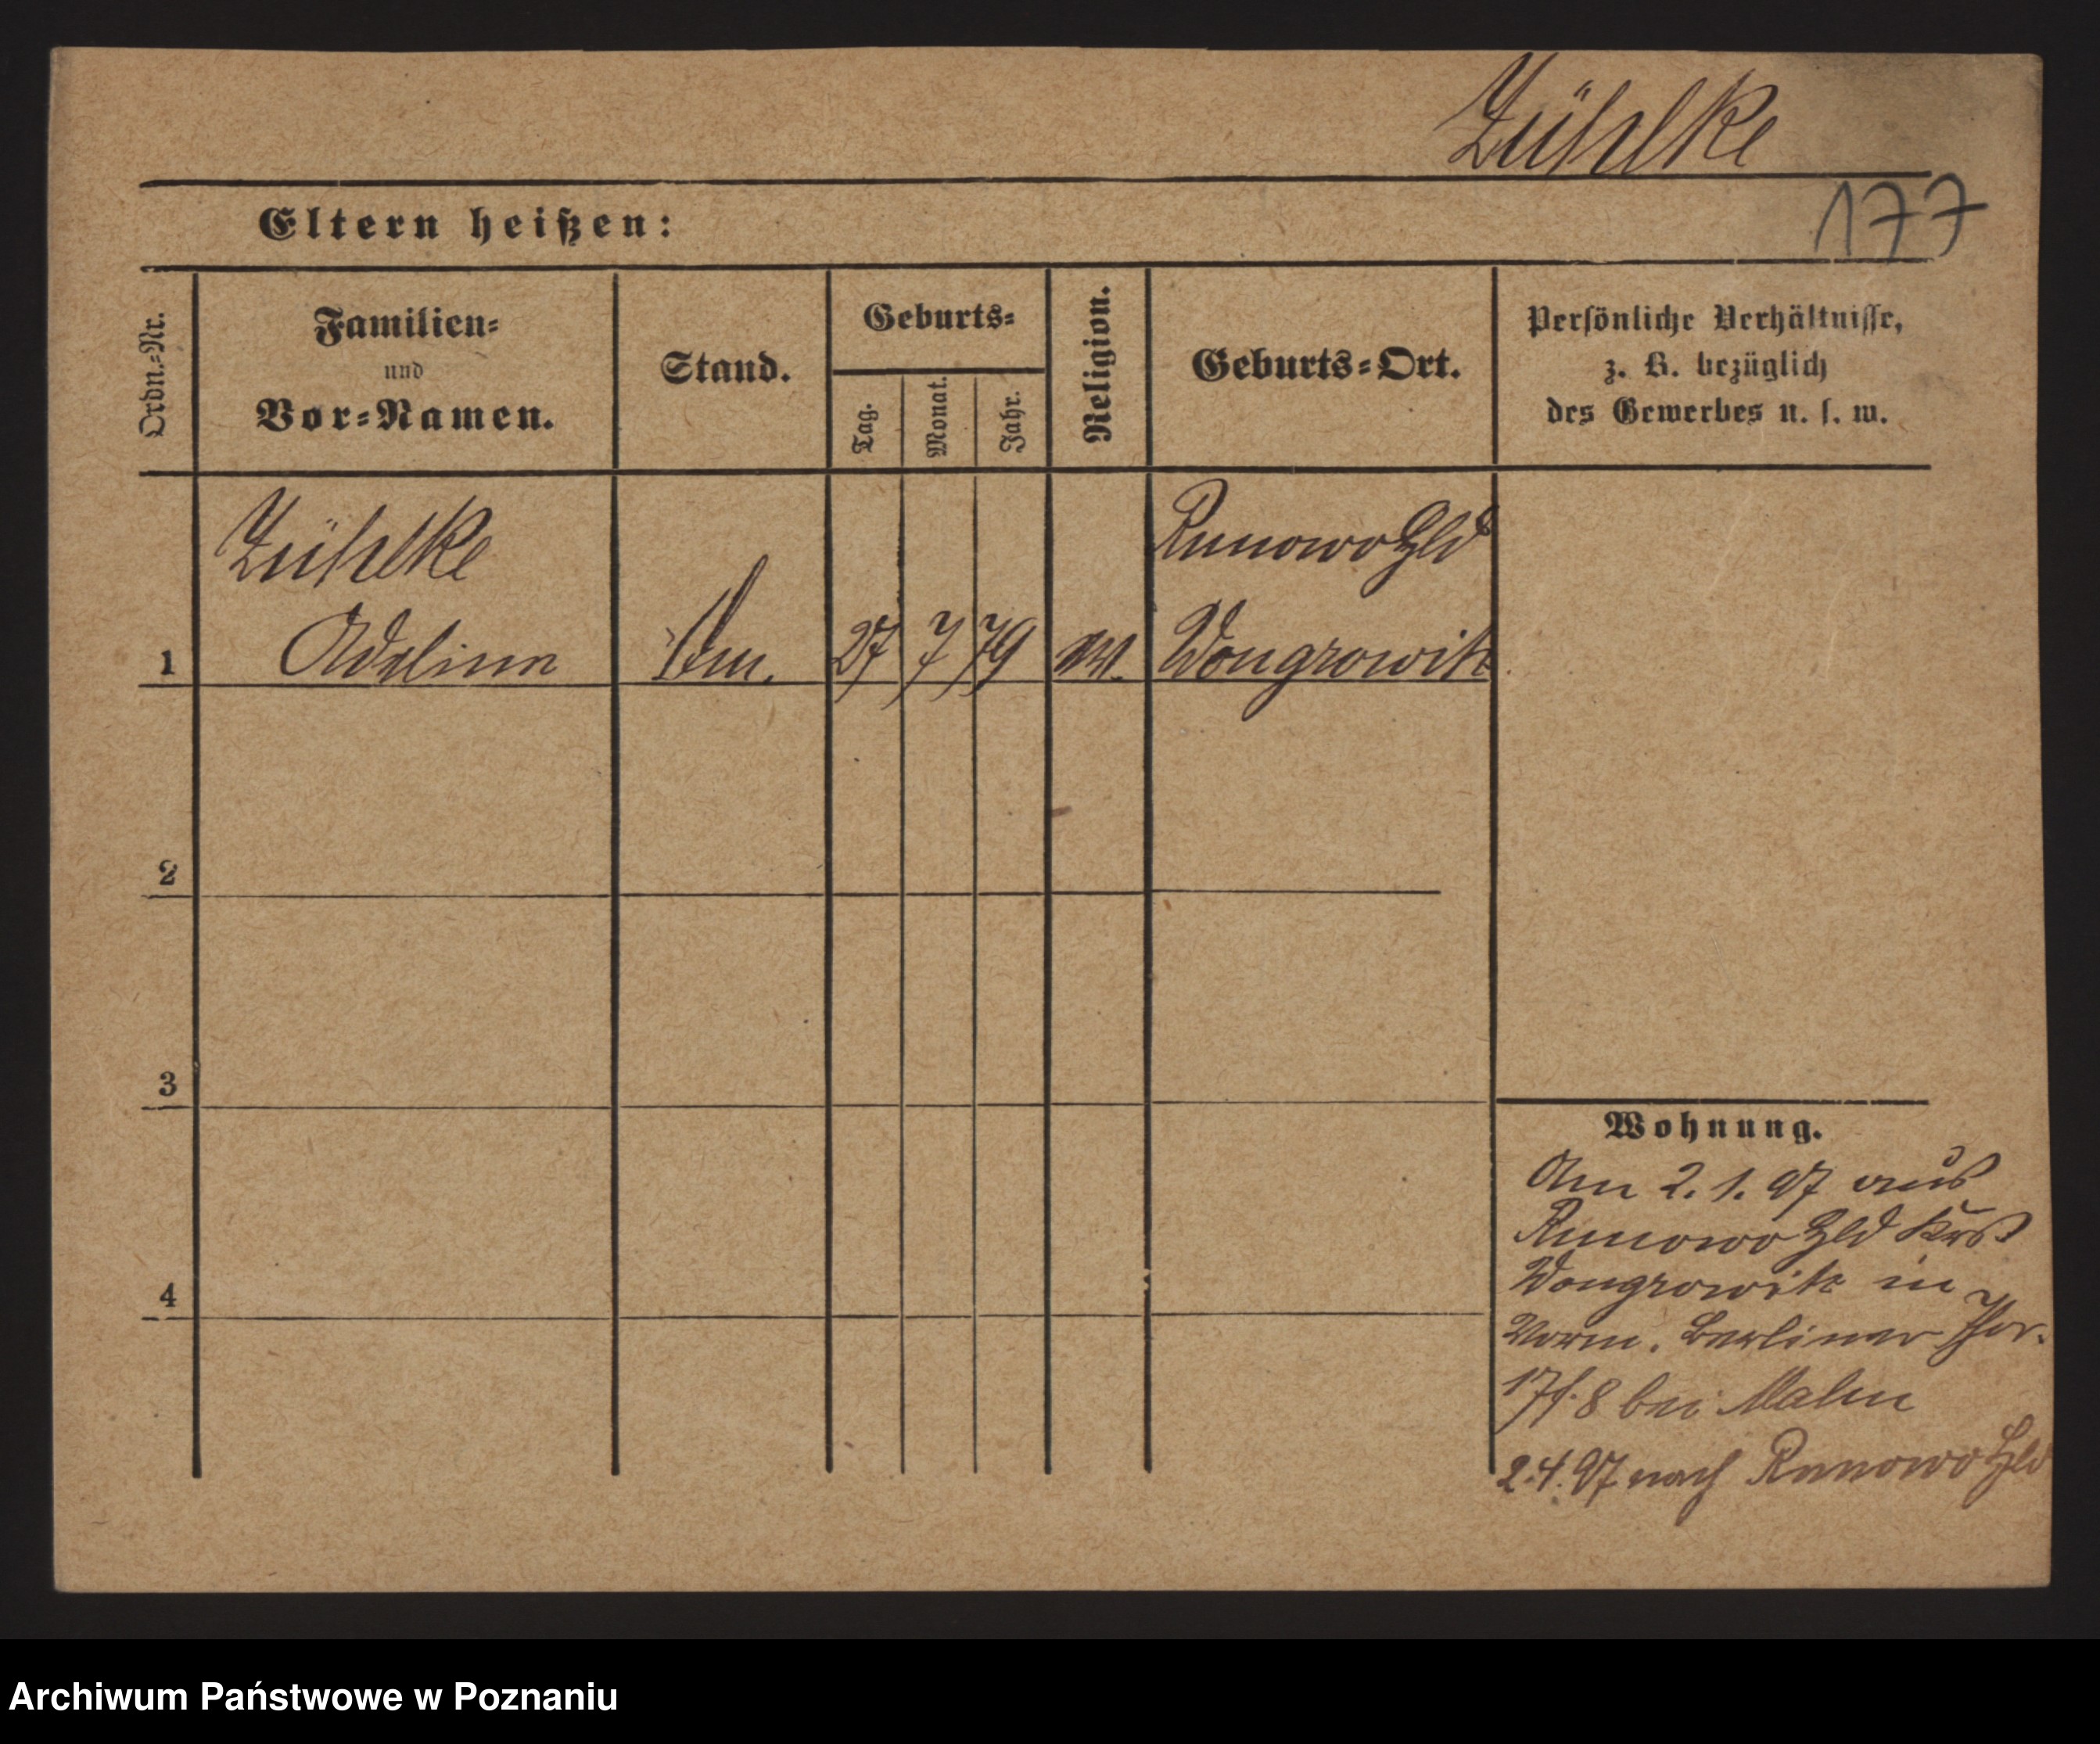 Zühlke
177
Eltern heißen:
Ordn.=Nr.
Familien=
und
Vor=Namen.
Stand.
Geburts=
Tag.
Monat.
Jahr.
Religion.
Geburts=Ort.
Persönliche Verhältnisse,
z. B. bezüglich
des Gewerbes u. s. w.
1
Zühlke
Adeline
27 7 79
Runowo Hld
Wongrowitz
2
3
4
Wohnung.
Am 2. 1. 97 aus
Runowo Hld Krs
Wongrowitz in
Vorm. Berliner Thor.
17/18 bei Malm
2.4.97 nach Runowo Hld
Archiwum Państwowe w Poznaniu